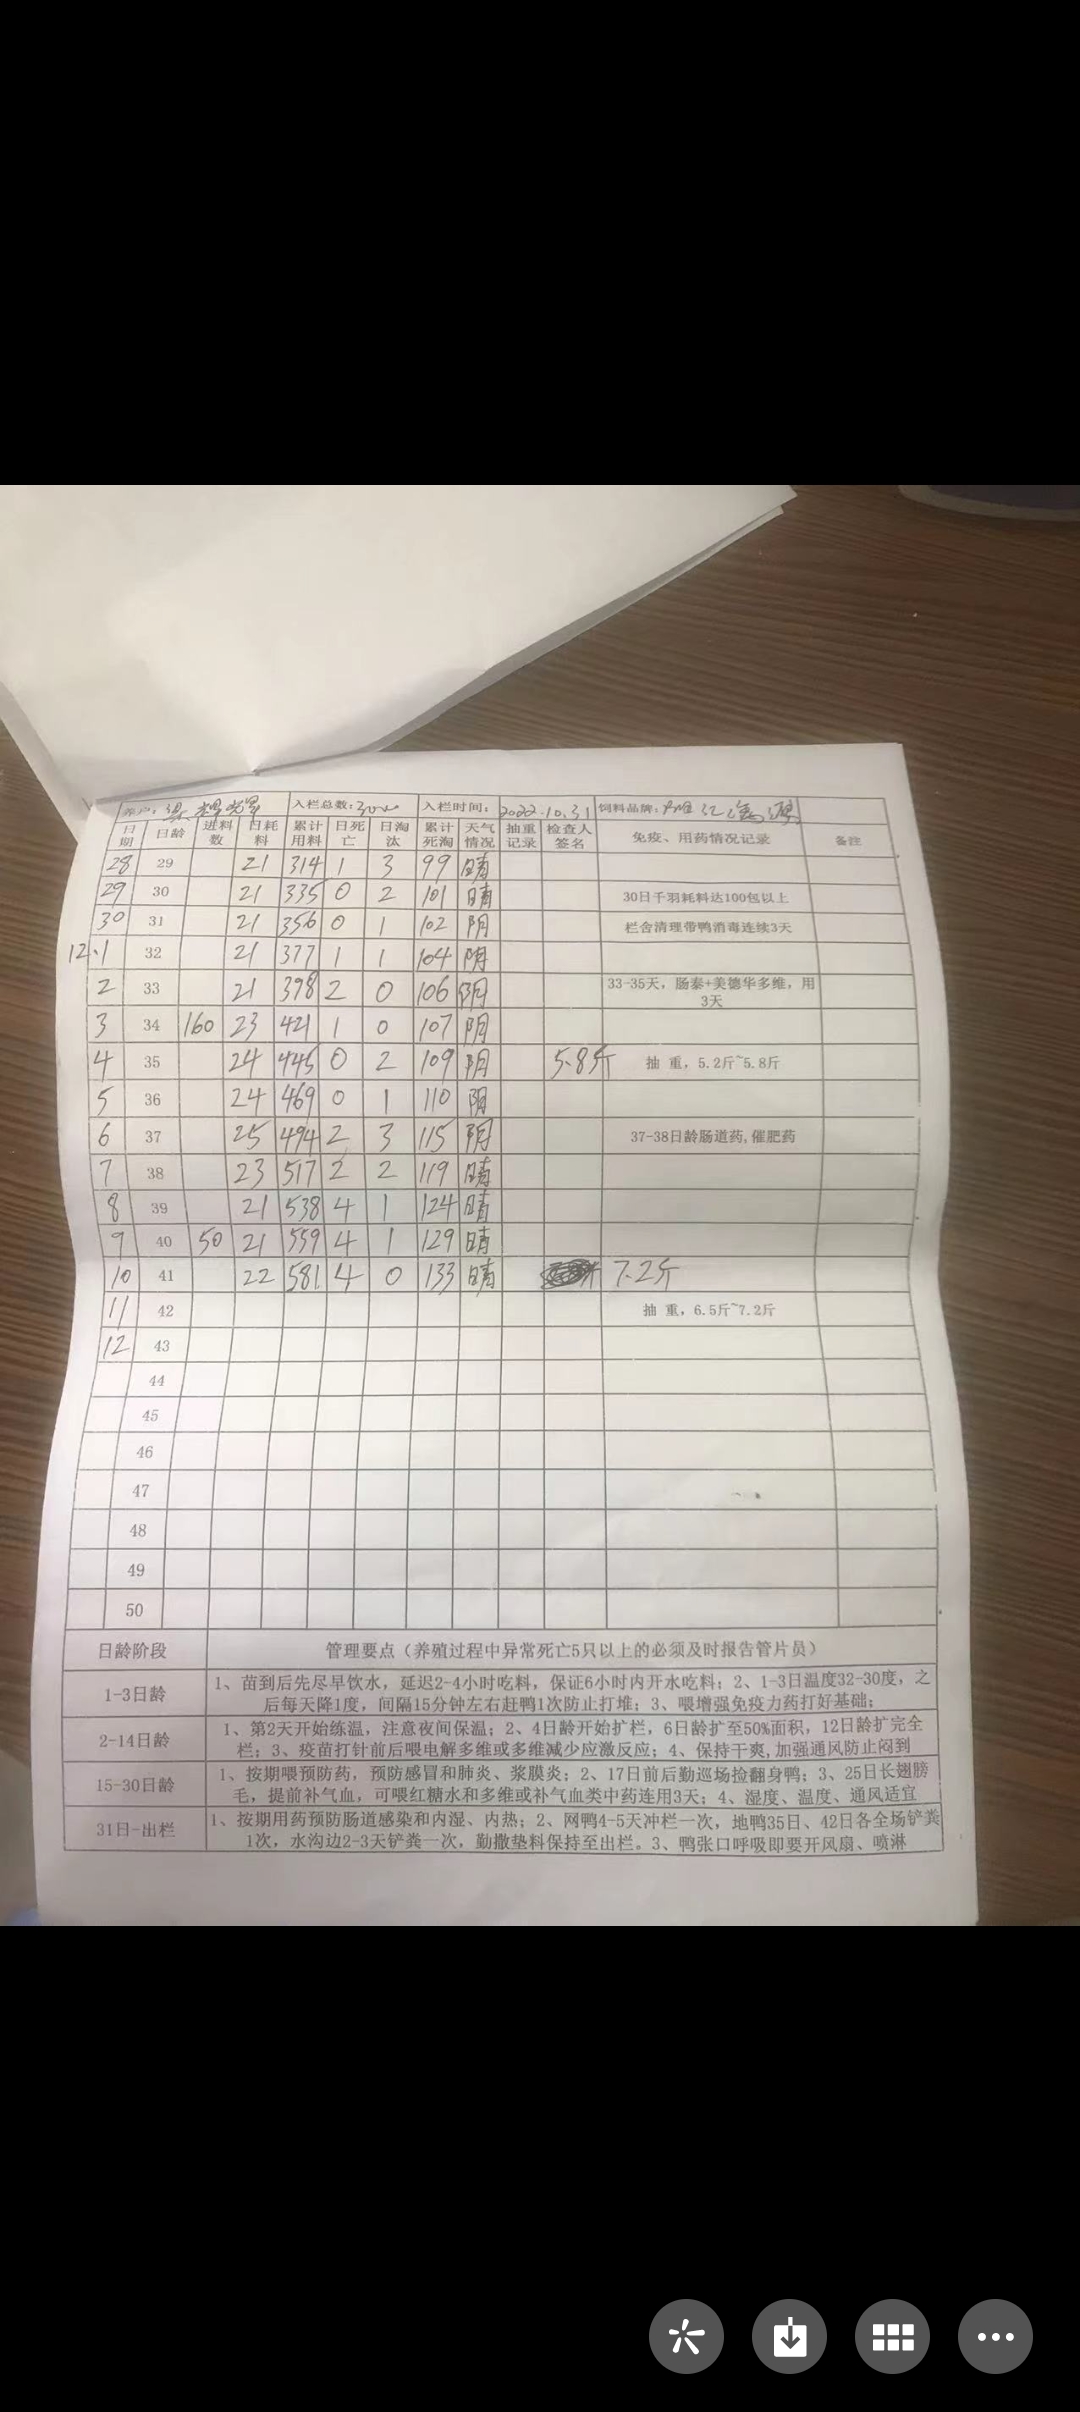 养户: 入栏总数:3000 入栏时间: 2022.10.31 饲料品牌:
日期 日龄 进料数 日耗料 累计用料 日死亡 日淘汰 累计死淘 天气情况 抽重记录 检查人签名 免疫、用药情况记录 备注
28 29 21 314 1 3 99 晴
29 30 21 335 0 2 101 晴 30日千羽耗料达100包以上
30 31 21 356 0 1 102 阴 栏舍清理带鸭消毒连续3天
12.1 32 21 377 1 1 104 阴
2 33 21 398 2 0 106 阴 33-35天，肠泰+美德华多维，用3天
3 34 160 23 421 1 0 107 阴
4 35 24 445 0 2 109 阴 5.8斤 抽 重，5.2斤~5.8斤
5 36 24 469 0 1 110 阴
6 37 25 494 2 3 115 阴 37-38日龄肠道药,催肥药
7 38 23 517 2 2 119 晴
8 39 21 538 4 1 124 晴
9 40 50 21 559 4 1 129 晴
10 41 22 581 4 0 133 晴 7.2斤
11 42 抽 重，6.5斤~7.2斤
12 43
44
45
46
47
48
49
50
日龄阶段 管理要点（养殖过程中异常死亡5只以上的必须及时报告管片员）
1-3日龄 1、苗到后先尽早饮水，延迟2-4小时吃料，保证6小时内开水吃料；2、1-3日温度32-30度，之
后每天降1度，间隔15分钟左右赶鸭1次防止打堆；3、喂增强免疫力药打好基础；
2-14日龄 1、第2天开始练温，注意夜间保温；2、4日龄开始扩栏，6日龄扩至50%面积，12日龄扩完全
栏；3、疫苗打针前后喂电解多维或多维减少应激反应；4、保持干爽,加强通风防止闷到
15-30日龄 1、按期喂预防药，预防感冒和肺炎、浆膜炎；2、17日前后勤巡场捡翻身鸭；3、25日长翅膀
毛，提前补气血，可喂红糖水和多维或补气血类中药连用3天；4、湿度、温度、通风适宜
31日-出栏 1、按期用药预防肠道感染和内湿、内热；2、网鸭4-5天冲栏一次，地鸭35日、42日各全场铲粪
1次，水沟边2-3天铲粪一次，勤撒垫料保持至出栏。3、鸭张口呼吸即要开风扇、喷淋